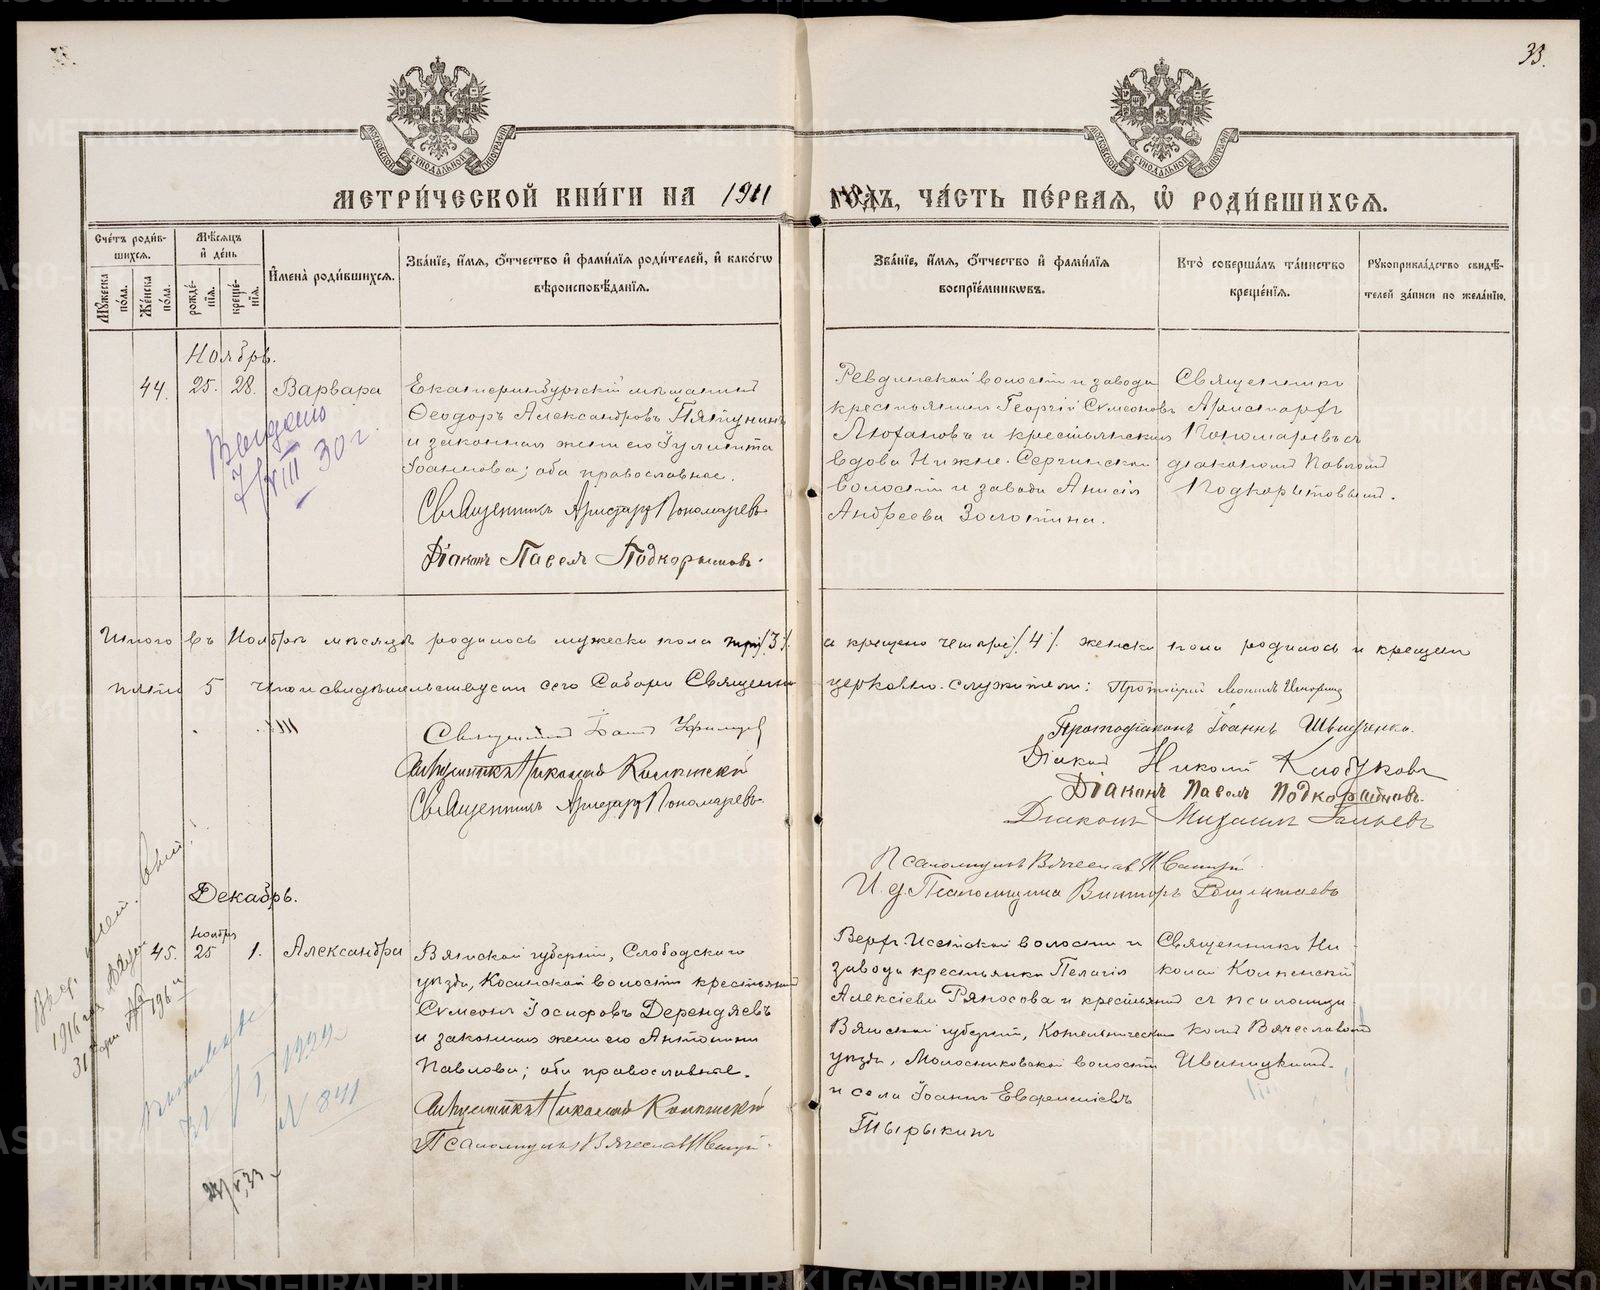 33.
МОСКОВСКОЙ СѴНОДАЛЬНОЙ ТИПОГРАФІИ
МОСКОВСКОЙ СѴНОДАЛЬНОЙ ТИПОГРАФІИ
МЕТРИ́ЧЕСКОЙ КНИ́ГИ НА 1911 ГОДЪ, ЧА́СТЬ ПЕ́РВАЯ, Ѡ҆ РОДИ́ВШИХСЯ.
Сче́тъ роди́в-
шихся.
Мꙋ́жеска по́ла.
Же́нска по́ла.
Мѣ́сяцъ
и҆ де́нь
рожде́-
нїя.
креще́-
нїя.
И҆мена̀ роди́вшихся.
Зва́нїе, и҆́мя, ѻ҆́тчество и҆ фами́лїя роди́телей, и҆ како́гѡ
вѣроисповѣ́данїя.
Зва́нїе, и҆́мя, ѻ҆́тчество и҆ фами́лїя
воспрїе́мникѡвъ.
Кто̀ соверша́лъ та́инство
креще́нїя.
Рꙋкоприкла́дство свидѣ́-
телей за́писи по жела́нїю.
Ноябрь.
44. 25. 28. Варвара
Екатеринбургскій мѣщанинъ
Ѳеодоръ Александровъ Пятунинъ
и законная жена его Іулитта
Іоаннова; оба православные.
Священникъ Аристархъ Пономаревъ
Діаконъ Павелъ Подкорытовъ.
Выдано
7/VIII 30 г.
Ревдинской волости и завода
крестьянинъ Георгій Сѵмеоновъ
Люхановъ и крестьянская
вдова Нижне-Сергинской
волости и завода Анисія
Андреева Золотина.
Священникъ
Аристархъ
Пономаревъ съ
діакономъ Павломъ
Подкорытовымъ.
Итого въ Ноябрѣ мѣсяцѣ родилось мужеска пола три /3/. а крещено четыре /4/. женска пола родилось и крещено
пять 5 что и свидѣтельствуетъ сего Собора Священно церковно-служители: Протоіерей
Священникъ Іоаннъ Уфимцев
Священникъ Николай
Священникъ Аристархъ Пономаревъ
Протодіаконъ Іоаннъ
Діаконъ Николай Клюкуновъ
Діаконъ Павелъ Подкорытовъ.
Діаконъ Михаилъ
Псаломщикъ Вячеславъ Иваницкій
И. д. Псаломщика Викторъ
Декабрь.
45. Ноября 25 1. Александра
Вятской губерніи, Слободского
уѣзда, Косинской волости крестьянинъ
Сѵмеонъ Іосифовъ Дерендяевъ
и законная жена его Антонина
Павлова; оба православные.
Священникъ Николай
Псаломщикъ Вячеславъ Иваницкій
1916 года
31
№ 196
I 1929
N 841
24/V 33
Верхъ-Исетской волости и
завода крестьянка Пелагія
Алексіева Ряпосова и крестьянинъ
Вятской губерніи, Котельническаго
уѣзда, Молотниковской волости
и села Іоаннъ Евфиміевъ
Тырыкинъ
Священникъ Ни-
колай
съ псаломщи-
комъ Вячеславомъ
Иваницкимъ.
METRIKI.GASO-URAL.RU